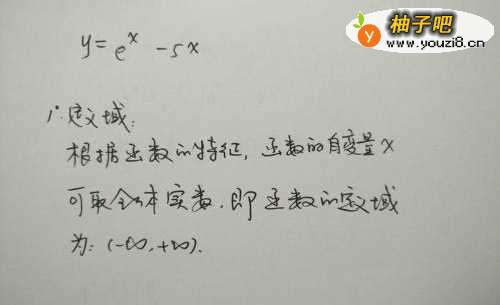 柚子吧
www.youzi8.cn
y=e^x -5x
1°.定义域:
根据函数的特征,函数的自变量x
可取全体实数,即函数的定义域
为:(-∞,+∞).